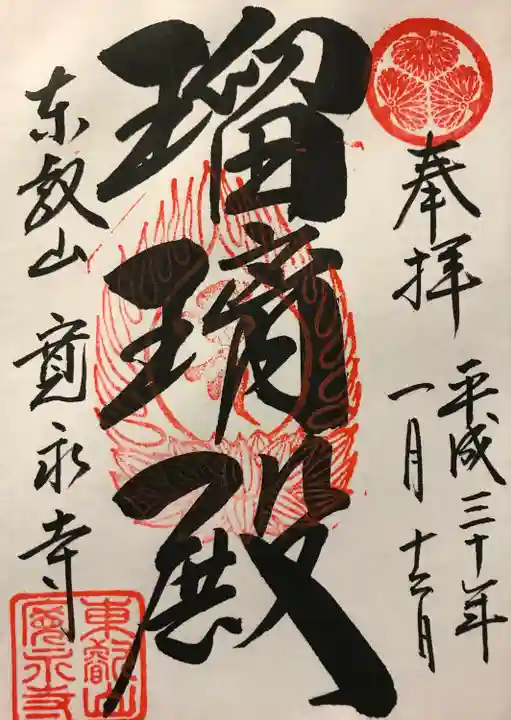 奉拝
平成三十年
一月十六日
瑠璃殿
東叡山 寛永寺
東叡山
寛永寺